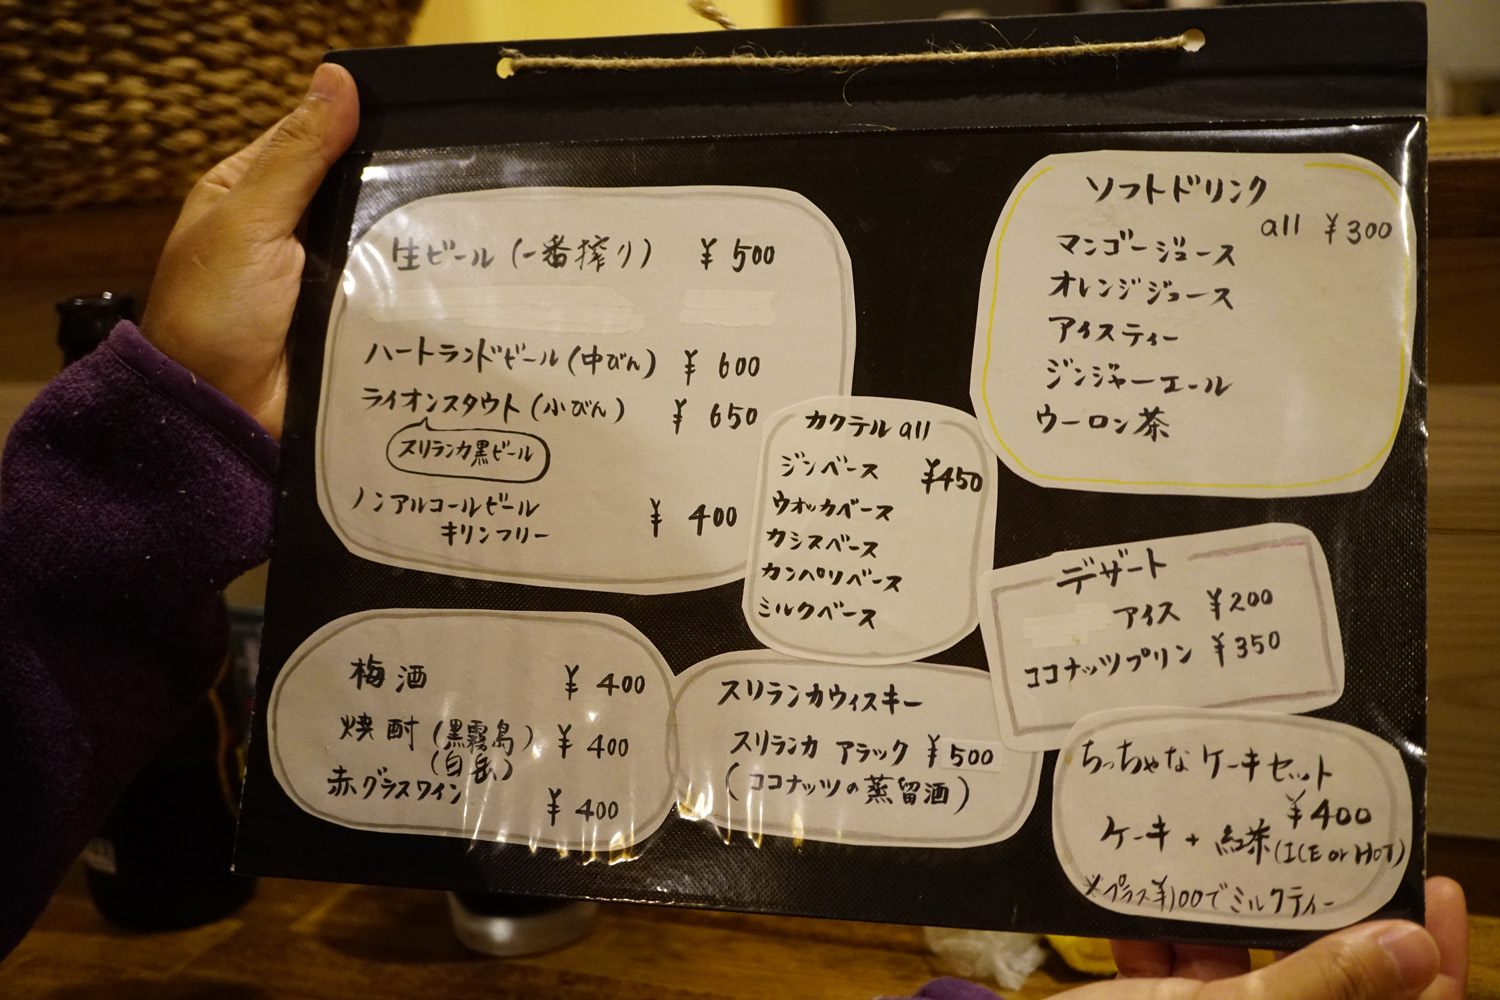 生ビール(一番搾り) ¥500
ハートランドビール(中びん) ¥600
ライオンスタウト(小びん) ¥650
スリランカ黒ビール
ノンアルコールビール
キリンフリー ¥400
ソフトドリンク
all ¥300
マンゴージュース
オレンジジュース
アイスティー
ジンジャーエール
ウーロン茶
カクテル all
¥450
ジンベース
ウオッカベース
カシスベース
カンパリベース
ミルクベース
デザート
アイス ¥200
ココナッツプリン ¥350
梅酒 ¥400
焼酎(黒霧島) ¥400
(白岳)
赤グラスワイン ¥400
スリランカウィスキー
スリランカ アラック ¥500
(ココナッツの蒸留酒)
ちっちゃなケーキセット
¥400
ケーキ+紅茶(ICE or HOT)
※プラス¥100でミルクティー